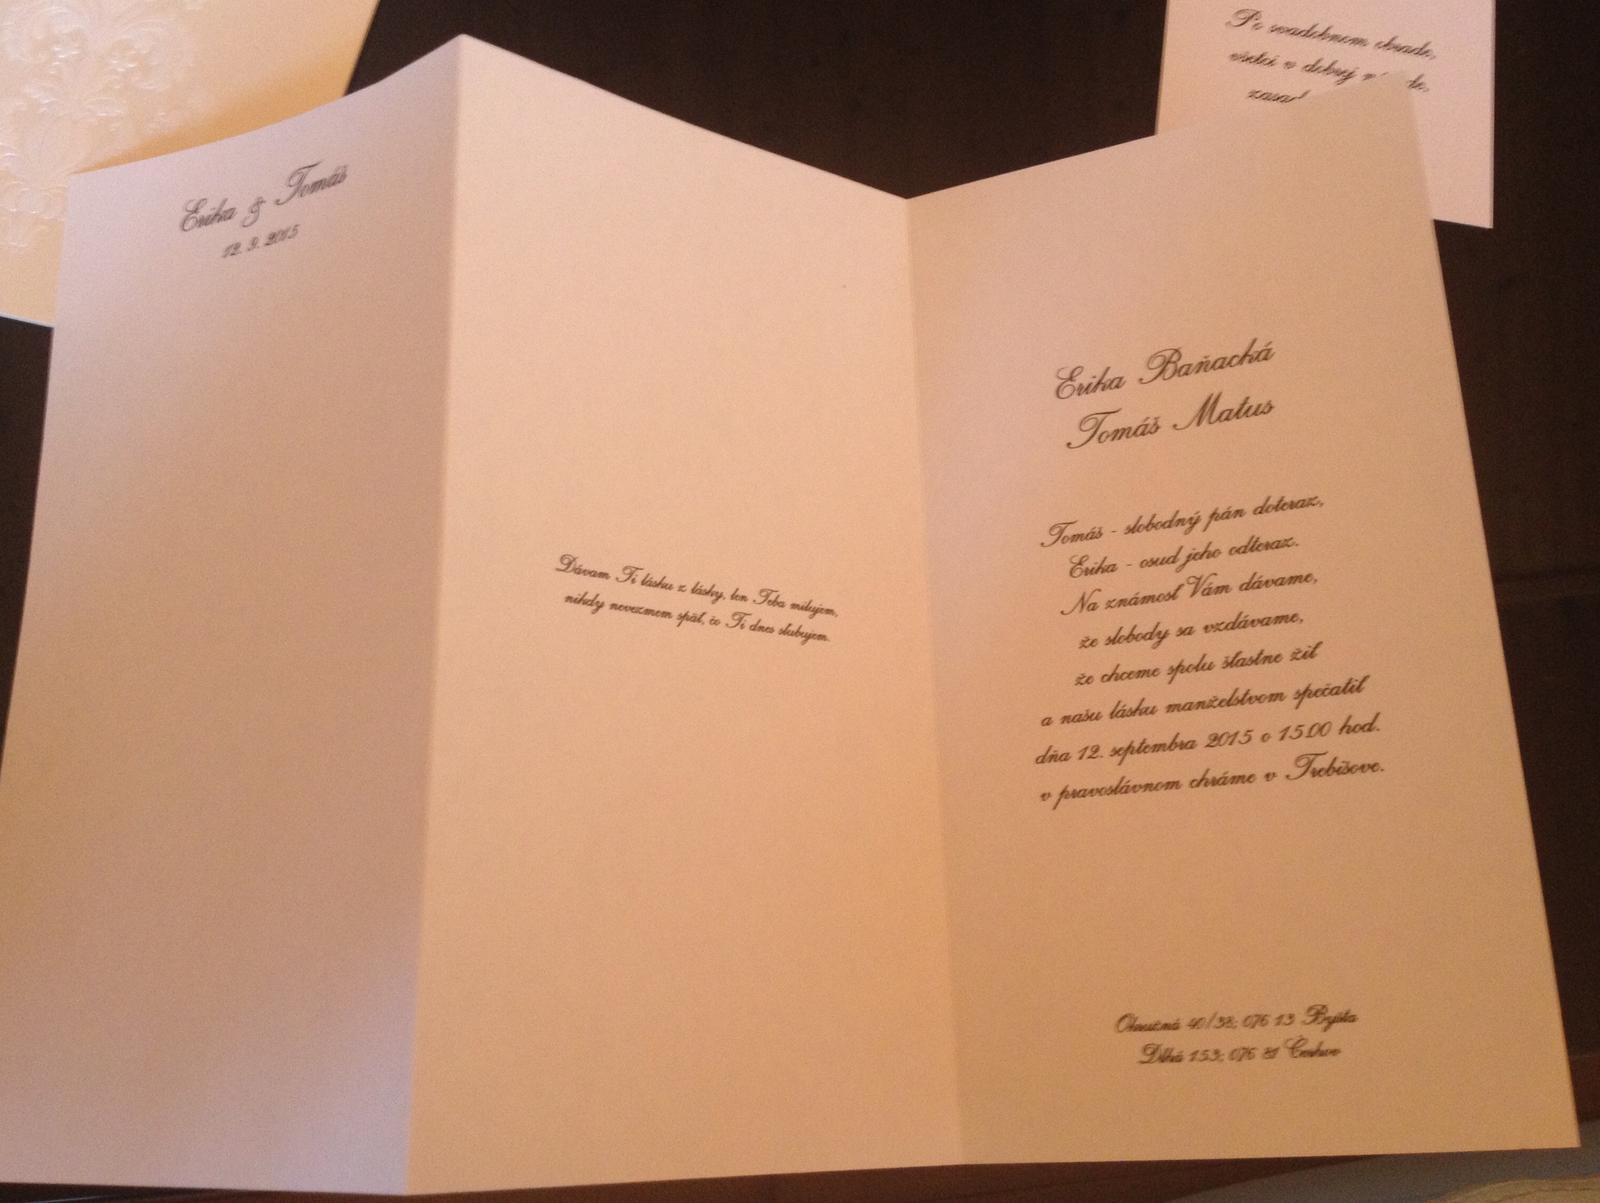 Erika & Tomáš
12. 9. 2015
Dávam Ti lásku z lásky, len Teba milujem,
nikdy nevezmem späť, čo Ti dnes sľubujem.
Erika Baňacká
Tomáš Matus
Tomáš - slobodný pán doteraz,
Erika - osud jeho odteraz.
Na známosť Vám dávame,
že slobody sa vzdávame,
že chceme spolu šťastne žiť
a našu lásku manželstvom spečatiť
dňa 12. septembra 2015 o 15.00 hod.
v pravoslávnom chráme v Trebišove.
Okružná 40/38; 076 13 Byšta
Dlhá 153; 076 81
Po svadobnom obrade,
všetci v dobrej